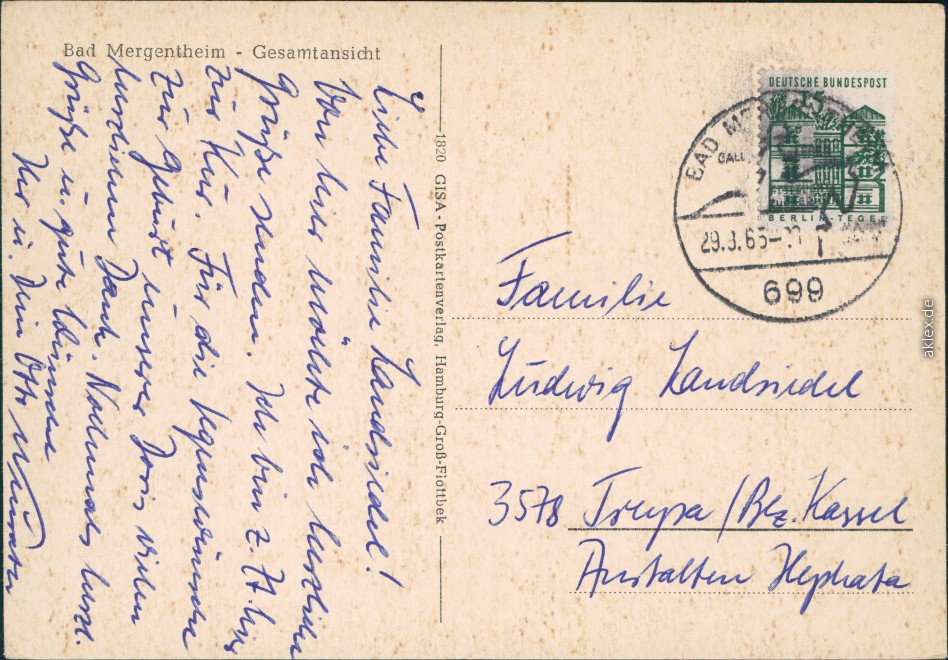 Bad Mergentheim - Gesamtansicht
Liebe Familie Landsiedel!
Von hier möchte ich herzliche
Grüße senden. Ich bin z. Zt. hier
zur Kur. Für die Segenswünsche
zur Geburt unserer Doris vielen
herzlichen Dank. Nochmals herzl.
Grüße u. gute Wünsche
Ihr u. Dein Otto
1820 GISA-Postkartenverlag, Hamburg-Groß-Flottbek
DEUTSCHE BUNDESPOST
15
BERLIN-TEGEL
BAD MERGENTHEIM
29.3.65
699
Familie
Ludwig Landsiedel
3578 Treysa / Bez. Kassel
Anstalten Hephata
aklex.de